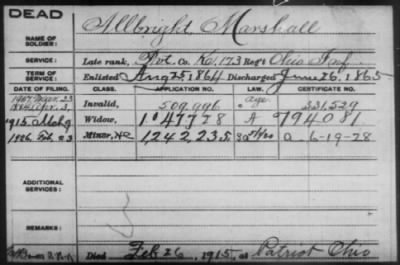 DEAD
NAME OF SOLDIER: Allbright Marshall
SERVICE: Late rank, Pvt. Co. K, 173 Reg't Ohio Inf.
TERM OF SERVICE: Enlisted Aug 25, 1864 Discharged June 26, 1865
DATE OF FILING. CLASS. APPLICATION NO. LAW. CERTIFICATE NO.
Invalid, 509,996 age 331,529
1915 Mch 9 Widow, 1047728 A 794081
1926 Feb. 23 Minor, HC 1,242,235 a 6-19-28
ADDITIONAL SERVICES:
REMARKS:
Died Feb 26, 1915, at Patriot Ohio